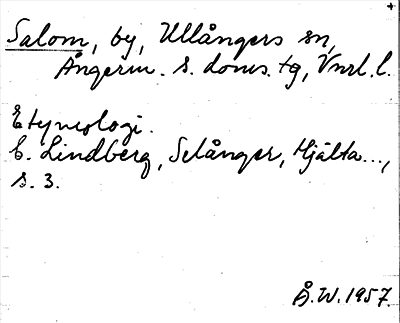 Salom, by, Ullångers sn,
Ångerm. s. doms. tg, Vnrl. l.
Etymologi.
C. Lindberg, Selånger, Hjälta...,
s. 3.
Å.W. 1957.